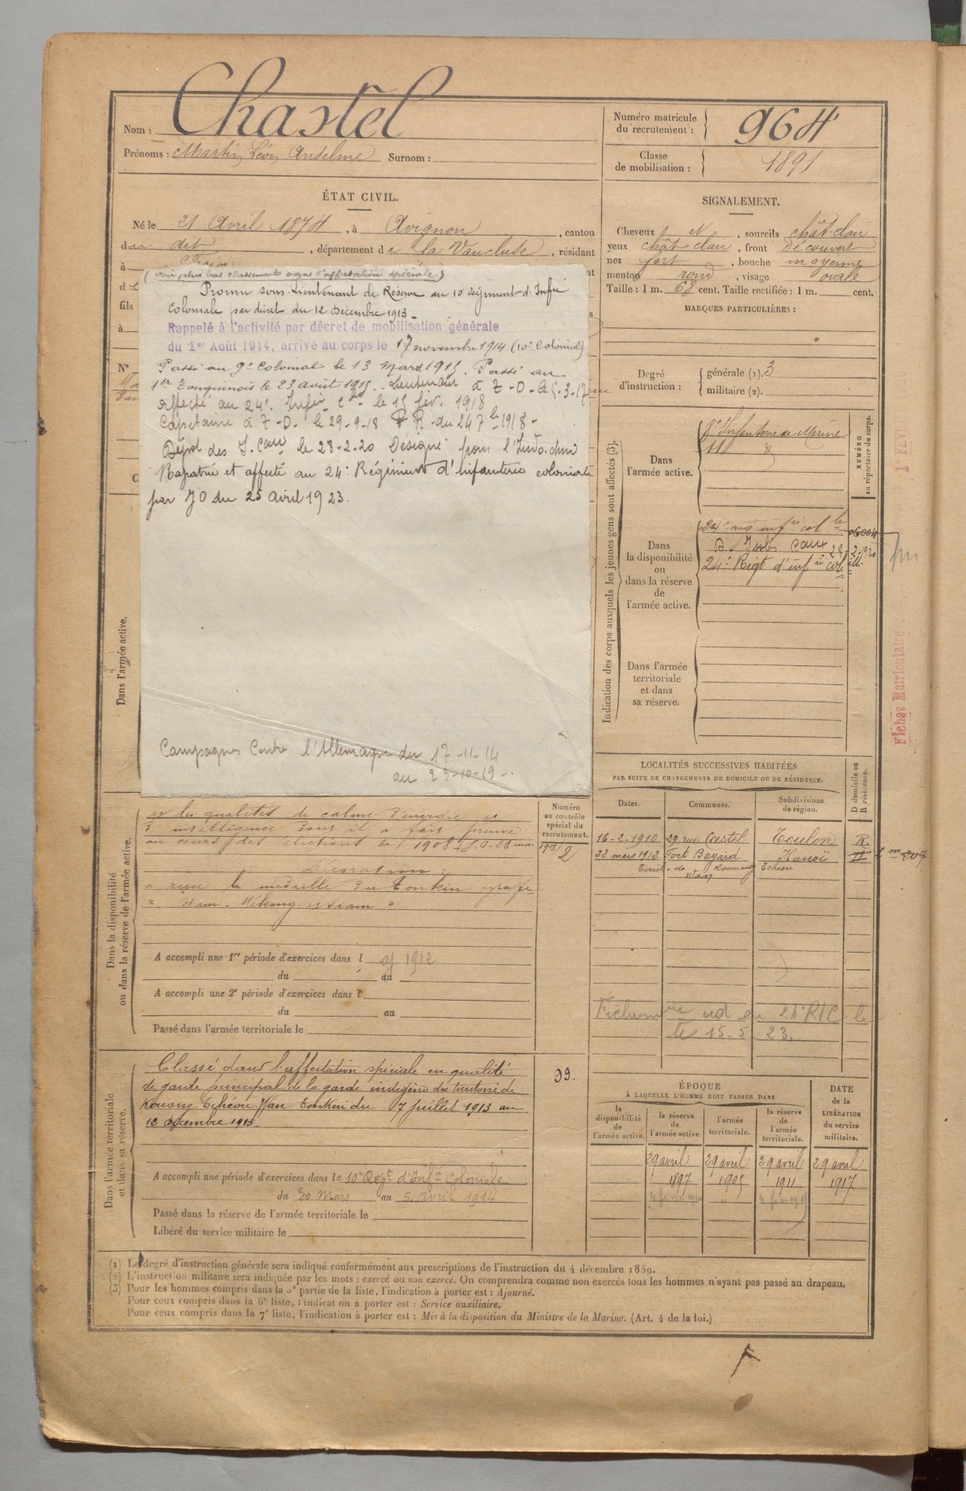 Nom : Chastel
Prénoms : Martin Léon Anselme Surnom :
Numéro matricule
du recrutement : 964
Classe
de mobilisation : 1891
ÉTAT CIVIL.
Né le 21 Avril 1874, à Avignon, canton
du dit, département de la Vaucluse, résidant
à
fils
à
SIGNALEMENT.
Cheveux et, sourcils chât clair
yeux chât-clair, front découvert
nez fort, bouche moyenne
menton rond, visage ovale
Taille : 1 m. 68 cent. Taille rectifiée : 1 m. cent.
MARQUES PARTICULIÈRES :
Degré
d'instruction :
générale (1). 3
militaire (2).
(voir plus bas classement affectation spéciale)
Promu sous-lieutenant de Réserve au 10e régiment d'Infie
Coloniale par décret du 12 Décembre 1913
Rappelé à l'activité par décret de mobilisation générale
du 1er Août 1914, arrivé au corps le 17 novembre 1914 (10e Colonial)
Passé au 9e Colonial le 13 mars 1915. Passé au
1er Tonquinois le 23 avril 1915. Lieutenant à T-D- le 5-3-17
affecté au 24e Infie Cle le 15 fév. 1918
Capitaine à T-D. le 29-9-18
Dépôt des I. Caux le 28-2-20 Désigné pour l'Indo-chine
Rapatrié et affecté au 24e Régiment d'Infanterie coloniale
par JO du 25 avril 1923.
Campagnes Contre l'Allemagne du 17-11-14
au 23-10-19-
Indication des corps auxquels les jeunes gens sont affectés (3).
NUMÉRO
au répertoire du corps.
Dans
l'armée active.
8e Infanterie de Marine
11e
Dans
la disponibilité
ou
dans la réserve
de
l'armée active.
24e rég infrie col le
24e Régt d'infie col
Dans l'armée
territoriale
et dans
sa réserve.
Fiches Matriculaire
Dans l'armée active.
LOCALITÉS SUCCESSIVES HABITÉES
PAR SUITE DE CHANGEMENTS DE DOMICILE OU DE RÉSIDENCE.
D domicile ou
R résidence.
Dates. Communes. Subdivisions
de région.
16-2-1910 29 rue Castel Toulon R
22 mars 1912 Fort Bayard Hanoï
Territ- de Kouang Tchéou
Wan
Fichum
le 15.5 23.
Dans la disponibilité
ou dans la réserve de l'armée active.
Numéro
au contrôle
spécial du
recrutement.
et les qualités de calme d'énergie et
d'intelligence dont il a fait preuve
au cours des élections de 1908
Décoration
a reçu la médaille du Tonkin
A accompli une 1re période d'exercices dans l 1912
du au
A accompli une 2e période d'exercices dans l
du au
Passé dans l'armée territoriale le
Dans l'armée territoriale
et dans sa réserve.
Classé dans l'affectation spéciale en qualité
de garde principal de la garde indigène du territoire de
Kouang Tchéou Wan Tonkin du 17 juillet 1913 au
12 décembre 1913.
99.
A accompli une période d'exercices dans le 10e Régt d'Infie Coloniale
du 30 Mars au 5 avril 1914
Passé dans la réserve de l'armée territoriale le
Libéré du service militaire le
ÉPOQUE
À LAQUELLE L'HOMME DOIT PASSER DANS
DATE
de la
LIBÉRATION
du service
militaire.
la
disponibilité
de
l'armée active.
la réserve
de
l'armée active.
l'armée
territoriale.
la réserve
de
l'armée
territoriale.
29 avril 29 avril 29 avril 29 avril
1897 1905 1911 1917
(1) Le degré d'instruction générale sera indiqué conformément aux prescriptions de l'instruction du 4 décembre 1889.
(2) L'instruction militaire sera indiquée par les mots : exercé ou non exercé. On comprendra comme non exercés tous les hommes n'ayant pas passé au drapeau.
(3) Pour les hommes compris dans la 5e partie de la liste, l'indication à porter est : Ajourné.
Pour ceux compris dans la 6e liste, l'indication à porter est : Service auxiliaire.
Pour ceux compris dans la 7e liste, l'indication à porter est : Mis à la disposition du Ministre de la Marine. (Art. 4 de la loi.)